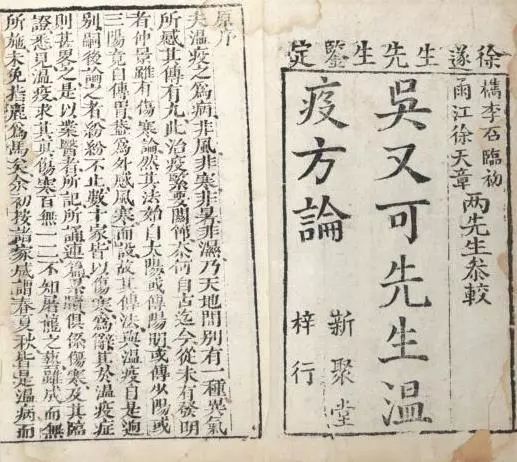 徐遂生先生鑒定
檇李石臨初
雨江徐天章
两先生叅較
吳又可先生溫
疫方論
新聚堂
梓行
原序
夫溫疫之爲病非風非寒非暑非濕乃天地間別有一種異氣
所感其傳有九此治疫緊要關節奈何自古迄今從未有發明
者仲景雖有傷寒論然其法始自太陽或傳陽明或傳少陽或
三陽竟自傳胃蓋爲外感風寒而設故其傳法與溫疫自是逈
別嗣後論之者紛紛不止數十家皆以傷寒爲辭其於溫疫症
則甚畧之是以業醫者所記所誦連篇累牘俱係傷寒及其臨
證悉見溫疫求其真傷寒百無一二不知屠龍之藝雖成而無
所施未免指鹿爲馬矣余初按諸家咸謂春夏秋皆是溫病而